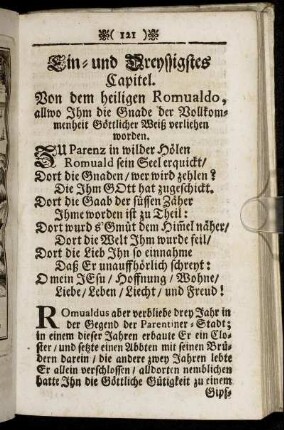 ( 121 )
Ein- und Dreyssigstes
Capitel.
Von dem heiligen Romualdo,
allwo Ihm die Gnade der Vollkom-
menheit Göttlicher Weiß verliehen
worden.
ZU Parenz in wilder Hölen
Romuald sein Seel erquickt/
Dort die Gnaden/ wer wird zehlen?
Die Ihm GOtt hat zugeschickt.
Dort die Gaab der süssen Zäher
Ihme worden ist zu Theil:
Dort wurd s'Gmüt dem Him̃el näher/
Dort die Welt Ihm wurde feil/
Dort die Lieb Ihn so einnahme
Daß Er unauffhörlich schreyt:
O mein JEsu/ Hoffnung/ Wohne/
Liebe/ Leben/ Liecht/ und Freud!
ROmualdus aber verbliebe drey Jahr in
der Gegend der Parentiner-Stadt;
in einem dieser Jahren erbaute Er ein Clo-
ster/ und setzte einen Abbten mit seinen Brü-
dern darein/ die andere zwey Jahren lebte
Er allein verschlossen/ alldorten nemblichen
hatte Ihn die Göttliche Gütigkeit zu einem
Gipf-